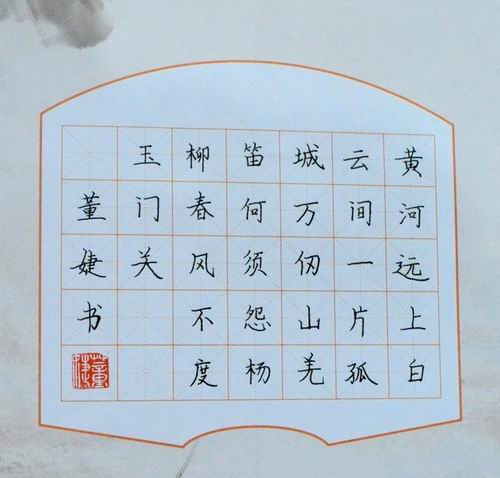 黄河远上白
云间一片孤
城万仞山羌
笛何须怨杨
柳春风不度
玉门关
董婕书
董婕